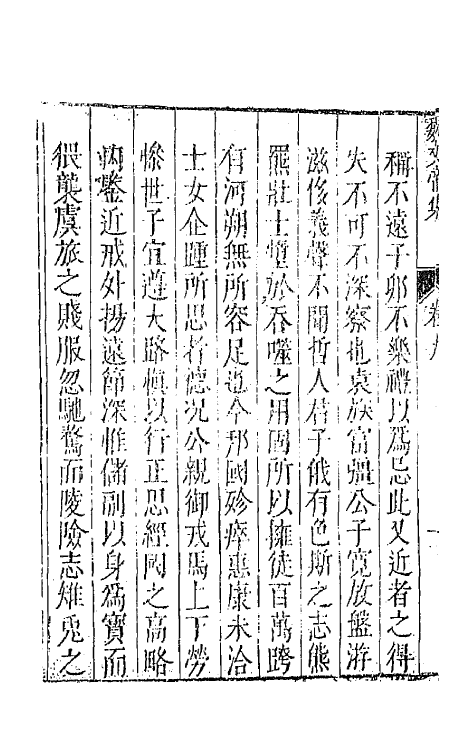 魏文帝集 卷九
稱不遠子卯不樂禮以爲忌此又近者之得
失不可不深察也袁族富彊公子寬放盤游
滋侈義聲不聞哲人君子俄有色斯之志熊
羆壯士墮於吞噬之用固所以擁徒百萬跨
有河朔無所容足也今邦國殄瘁惠康未洽
士女企踵所思者德況公親御戎馬上下勞
慘世子宜遵大路慎以行正思經國之高略
內鑒近戒外揚遠節深惟儲副以身爲寶而
猥襲虞旅之賤服忽馳騖而陵險志雉兎之